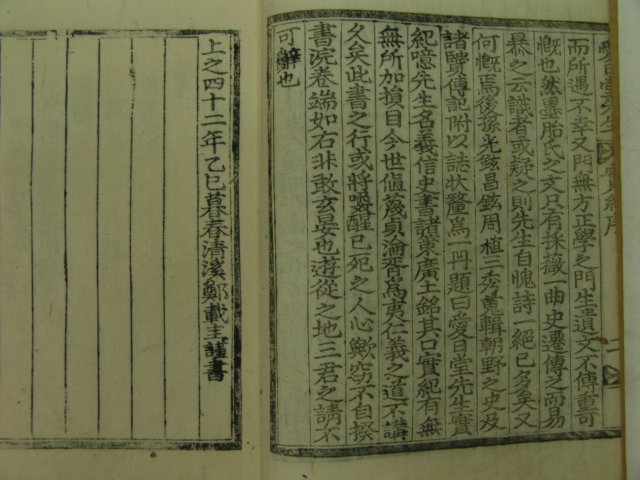 愛日堂先生實紀序
而所遇不幸又門無方正學之門生遺文不傳重可
慨也然墨胎氏之文只有採薇一曲史遷傳之而易
暴之云識者或疑之則先生自愧詩一絕已多矣又
何慨焉後孫光鉉昌鉉周植三秀蒐輯朝野之史及
諸賢傳記附以誌狀釐爲一冊題曰愛日堂先生實
紀噫先生名義信史書諸黃廣土銘其口實紀有無
無所加損目今世値蔑貞淪胥爲夷仁義之道不講
久矣此書之行或將喚醒已死之人心歟窃不自揆
書浣卷端如右非敢玄晏也遊從之地三君之請不
可辭也
上之四十二年乙巳暮春清溪鄭載圭謹書